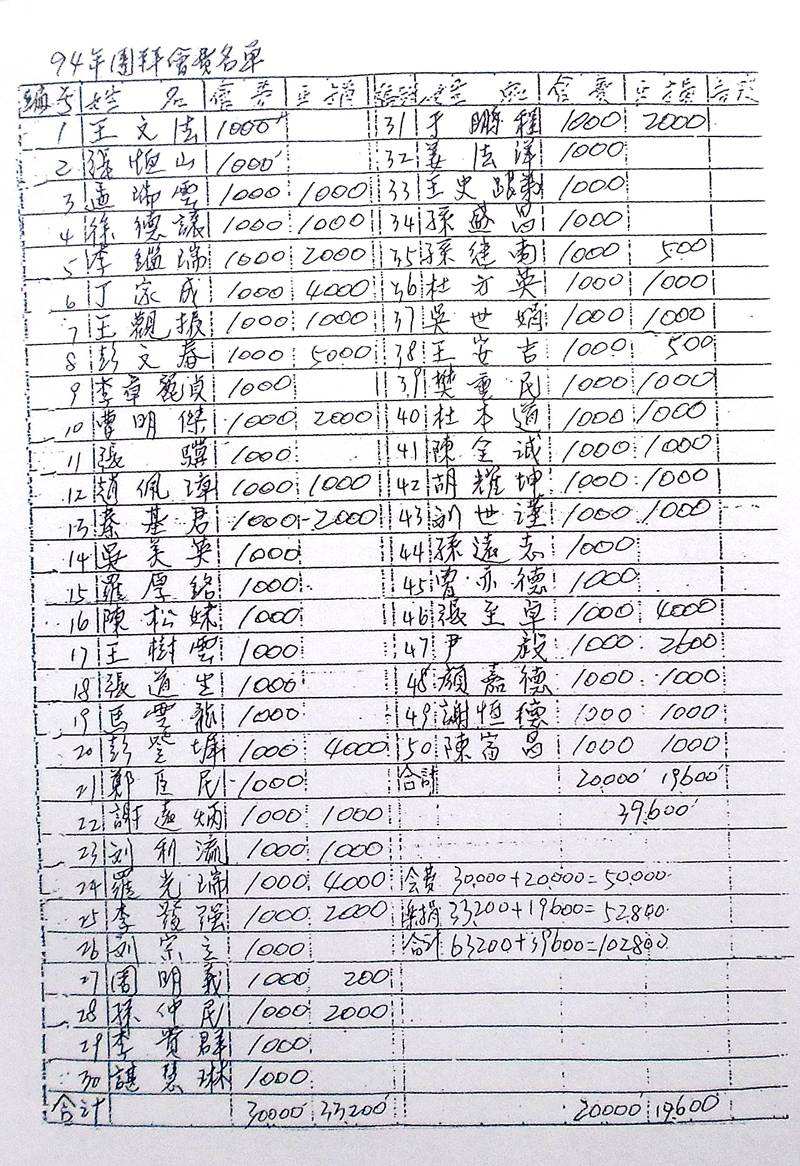 94年團拜會費名單
編号 姓 名 會 費 樂捐
1 王文法 1000
2 張恒山 1000
3 孟瑞雲 1000 1000
4 徐德讓 1000 1000
5 李鑑瑞 1000 2000
6 丁家成 1000 4000
7 王觀振 1000 1000
8 彭文春 1000 5000
9 李章麗貞 1000
10 曹明傑 1000 2000
11 張騏 1000
12 趙佩璋 1000 1000
13 秦基君 1000 2000
14 吳美英 1000
15 羅厚銘 1000
16 陳松妹 1000
17 王樹雲 1000
18 張道生 1000
19 馬雲龍 1000
20 彭 1000 4000
21 鄭臣民 1000
22 謝遠炳 1000 1000
23 刘利流 1000 1000
24 羅光瑞 1000 4000
25 李發强 1000 2000
26 刘宗立 1000
27 周明義 1000 200
28 孫仲民 1000 2000
29 李貴群 1000
30 諶慧琳 1000
合计 30000 33200
姓 名 會 費 樂捐
31 于鵬程 1000 2000
32 姜法洋 1000
33 王史跟弟 1000
34 孫盛昌 1000
35 孫建南 1000 500
36 杜方英 1000 1000
37 吳世娟 1000 1000
38 王安吉 1000 500
39 樊雲民 1000 1000
40 杜本道 1000 1000
41 陳全誠 1000 1000
42 胡耀坤 1000 1000
43 世謹 1000 1000
44 孫遠志 1000
45 曾亦德 1000
46 張至卓 1000 4000
47 尹毅 1000 2600
48 顏嘉德 1000 1000
49 謝恒德 1000 1000
50 陳富昌 1000 1000
合計 20000 19600
39600
会費 30000+20000=50000
樂捐 33200+19600=52800
合計 63200+39600=102800
20000 19600